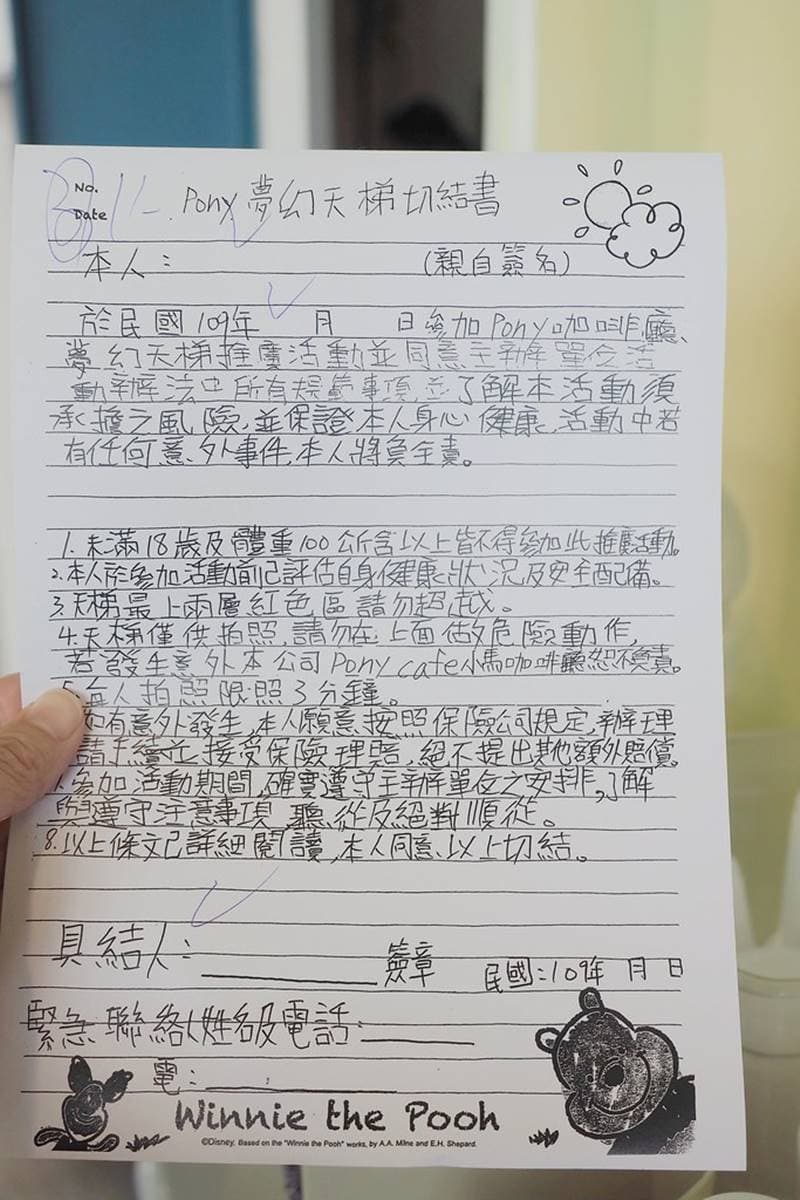 No.
Date
Pony 夢幻天梯切結書
本人： (親自簽名)
於民國109年 月 日參加Pony咖啡廳、
夢幻天梯推廣活動並同意主辦單位活
動辦法中所有規範事項,並了解本活動須
承擔之風險,並保證本人身心健康,活動中若
有任何意外事件,本人將負全責。
1.未滿18歲及體重100公斤含以上皆不得參加此推廣活動。
2.本人於參加活動前已評估自身健康狀況及安全配備。
3.天梯最上兩層紅色區請勿超越。
4.天梯僅供拍照,請勿在上面做危險動作,
若發生意外本公司Pony cafe小馬咖啡廳恕不負責。
5.每人拍照限照3分鐘。
如有意外發生,本人願意按照保險公司規定,辦理
請手續並接受保險理賠,絕不提出其他額外賠償。
參加活動期間,確實遵守主辦單位之安排,了解
與遵守注意事項,聽從及絕對順從。
8.以上條文已詳細閱讀,本人同意以上切結。
具結人： 簽章 民國：109年 月 日
緊急聯絡人姓名及電話：
電：
Winnie the Pooh
©Disney. Based on the "Winnie the Pooh" works, by A.A. Milne and E.H. Shepard.